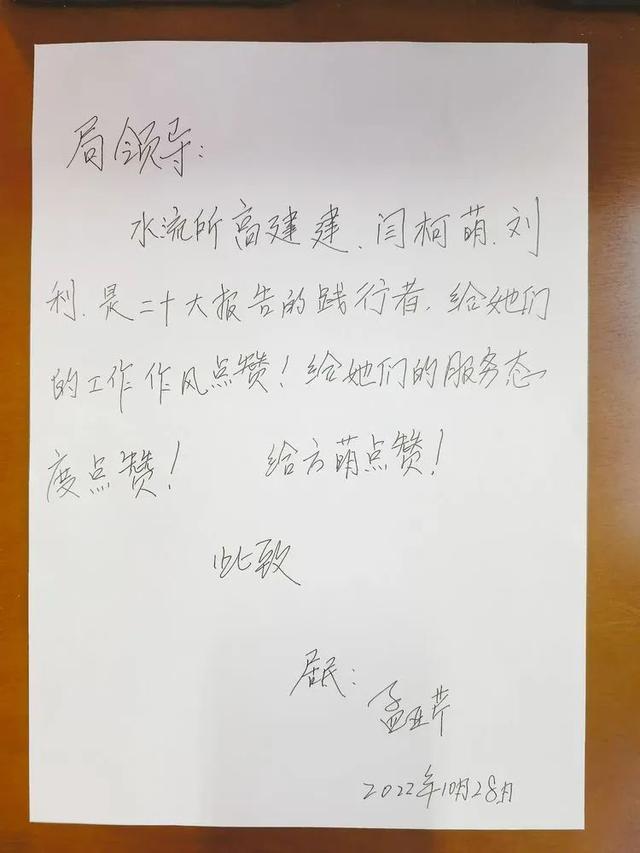 局领导:
水流所高建建、闫柯萌、刘
利、是二十大报告的践行者、给她们
的工作作风点赞!给她们的服务态
度点赞! 给方萌点赞!
此致
居民:
孟亚芹
2022年10月28月